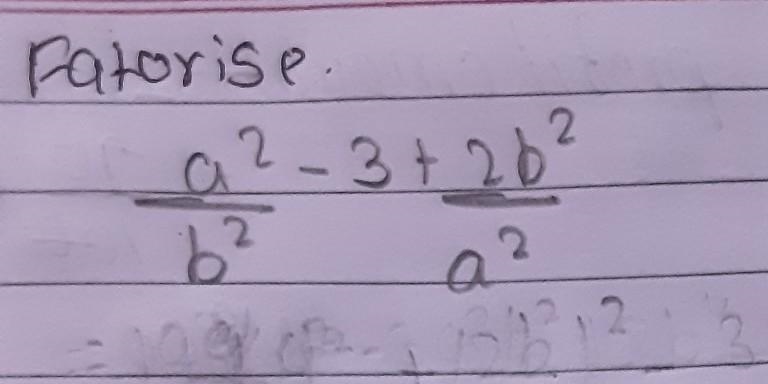 Fatorise.
a² - 3 + 2b²
b² a²